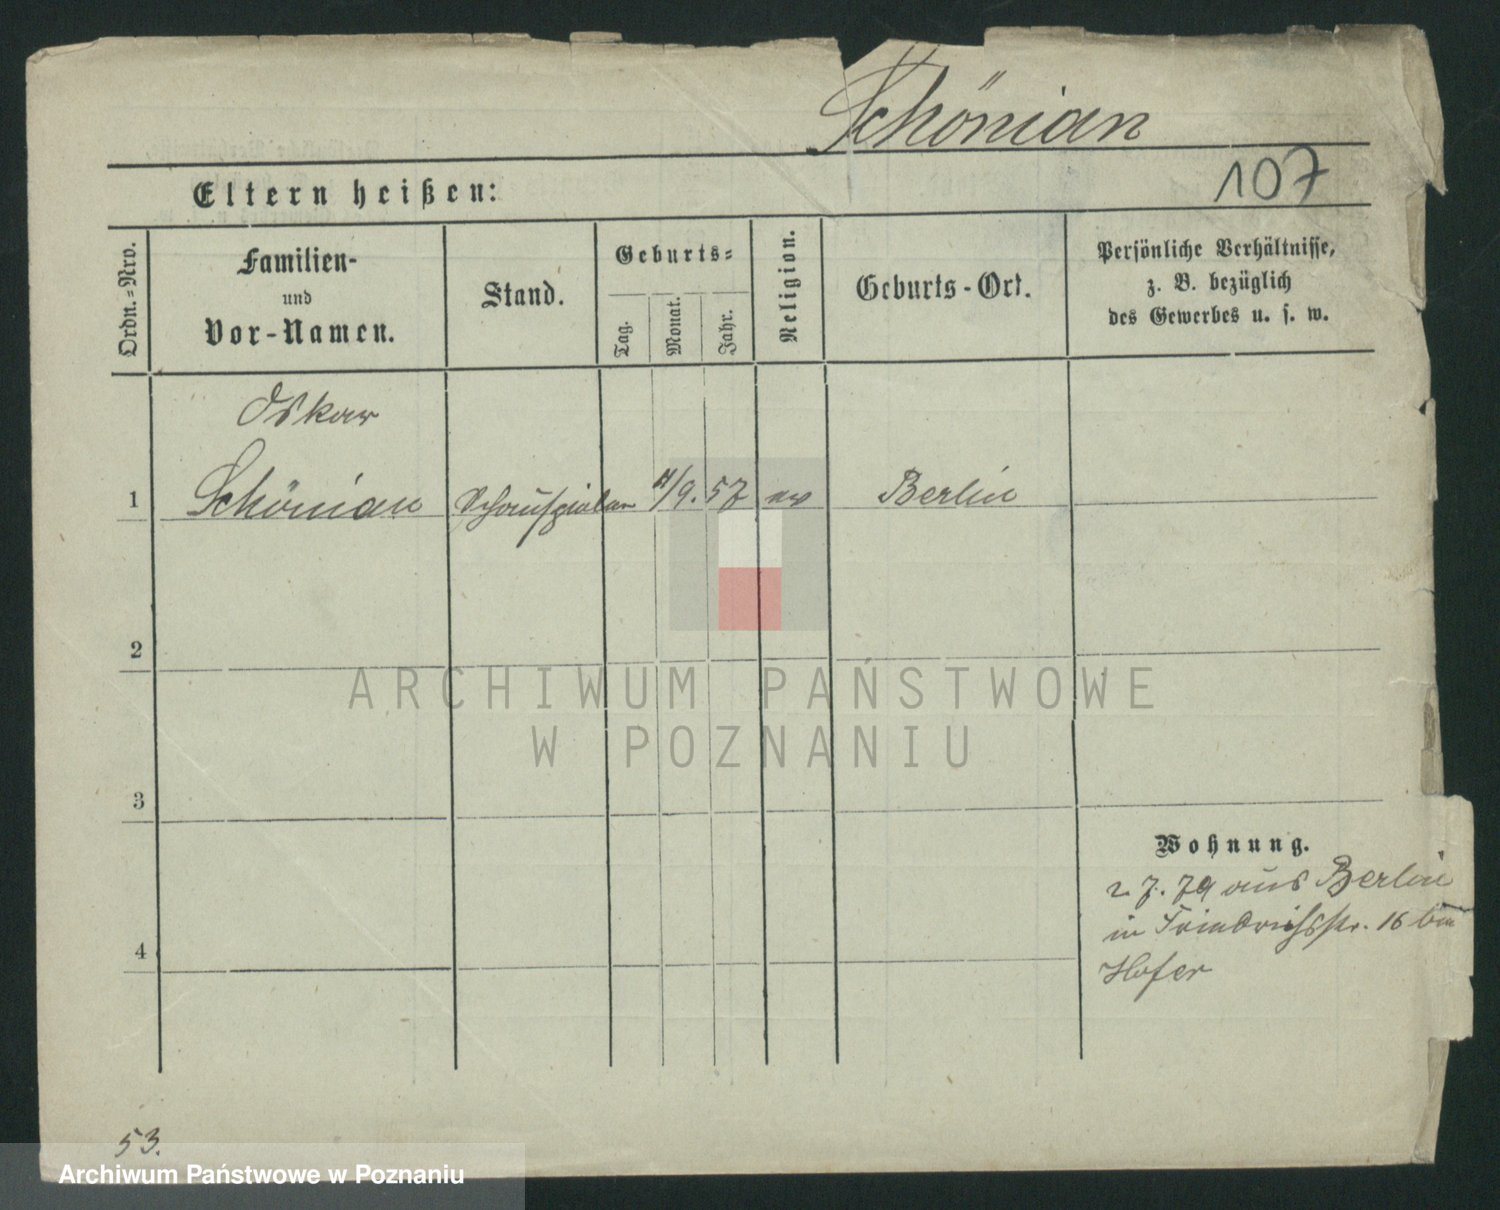 Schönian
107
Eltern heißen:
Ordn.-Nro.
Familien-
und
Vor-Namen.
Stand.
Geburts-
Tag.
Monat.
Jahr.
Religion.
Geburts-Ort.
Persönliche Verhältnisse,
z. B. bezüglich
des Gewerbes u. s. w.
Oskar
1 Schönian Schauspieler /9. 57 ev Berlin
2
3
4
ARCHIWUM PAŃSTWOWE
W POZNANIU
Wohnung.
2. 7. 79 aus Berlin
in Friedrichsstr. 16 bei
Hofer
53.
Archiwum Państwowe w Poznaniu